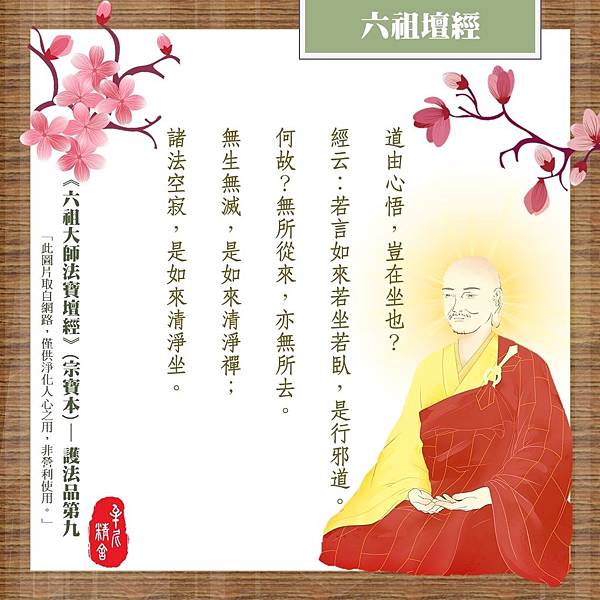 六祖壇經
道由心悟，豈在坐也？
經云：若言如來若坐若臥，是行邪道。
何故？無所從來，亦無所去。
無生無滅，是如來清淨禪；
諸法空寂，是如來清淨坐。
《六祖大師法寶壇經》（宗寶本）— 護法品第九
「此圖片取自網路，僅供淨化人心之用，非營利使用。」
精舍